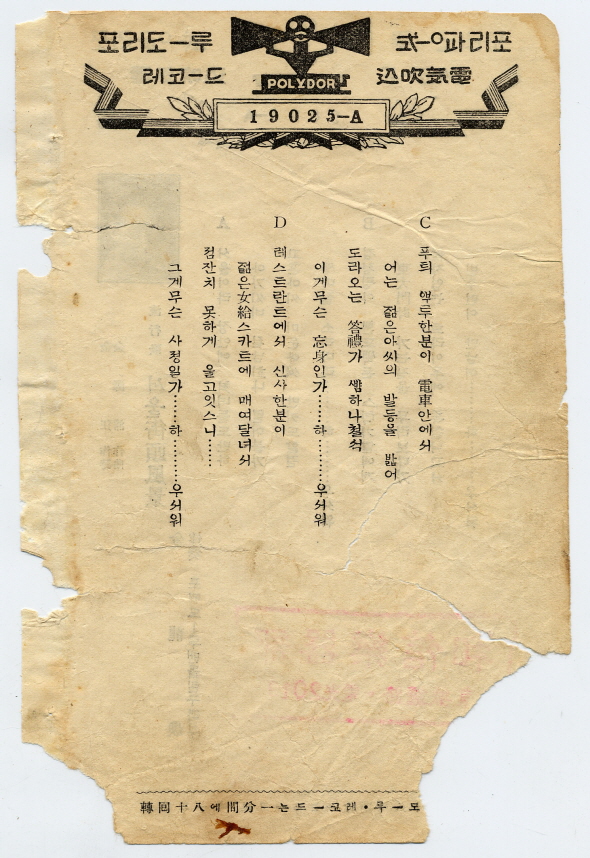 포리도ー루
레코ード
電氣吹込
POLYDOR
19025-A
C
푸틔 쌕루한분이 電車안에서
어는 젊은아씨의 발등을 밟어
도라오는 答禮가 쌥하나철석
이게무슨 忘身인가……하………우서워
D
레스트란트에서 신사한분이
젊은女給스카트에 매여달녀서
점잔치 못하게 울고잇스니……
그게무슨 사정일가……하………우서워
도ー루・레코ー드는一分間에八十回轉